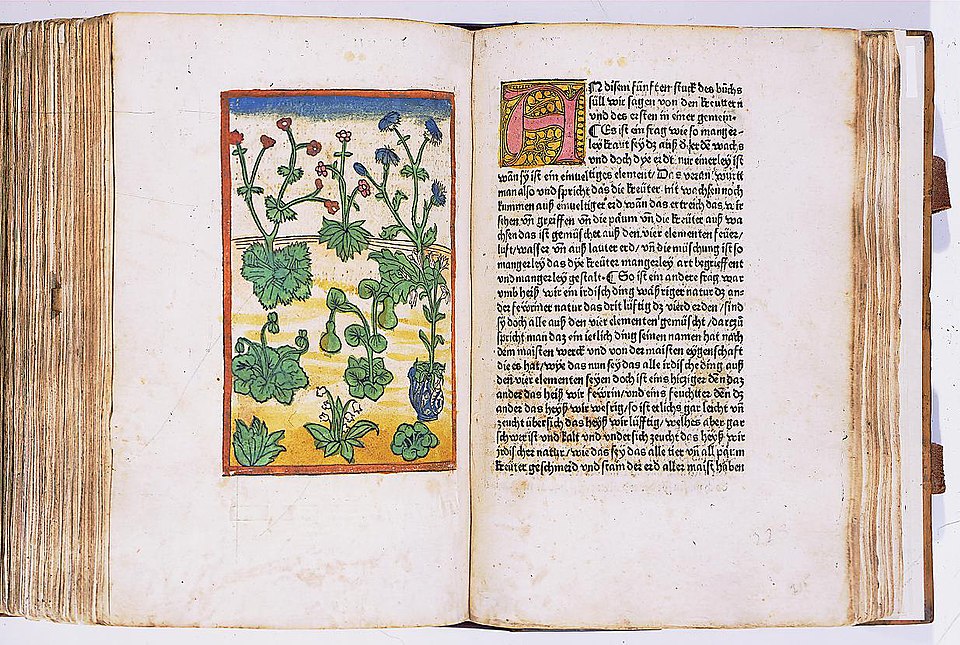 AN disem fünfften stuck des bůchs
süll wir sagen von den kreüttern
vnd des ersten in einer gemein.
¶ Es ist ein frag wie so manger-
ley kraut sey dz auß d erdē wachs
vnd doch dye erdt nur einerley ist
wān sy ist ein einueltiges element/ Das veran wurtt
man also vnd spricht das die kreüter nit wachsen noch
kummen auß einueltiger erd wān das ertreich das wir
sehen vn̄ greiffen vn̄ die påum vn̄ die kreüter auß wa
chsen das ist gemüschet auß den vier elementen feüer/
lufft/wasser vn̄ auß lauter erd/ vn̄ die müschung ist so
mangerley das dye kreüter mangerley art begreiffent
vnd mangerley gestalt. ¶ So ist ein andere frag war
vmb heiß wir ein irdisch ding wåßriger natur dz an-
der feẅriner natur das drit lüftig dz vierd erden/ sind
sy doch alle auß den vier elementen gemüscht/darzů
spricht man daz ein ietlich ding seinen namen hat nach
dem maisten werck vnd von der maisten eygenschafft
die es hat/wye das nun sey das alle irdische ding auß
den vier elementen seyen doch ist eins hicziger deñ daz
ander das heiß wir feẅrin/vnd eins feuchter deñ dz
ander das heyß wir wesrig/so ist etlichs gar leicht vn̄
zeucht übersich das heyß wir lüfftig/ welhes aber gar
schwer ist vnd kalt vnd vndersich zeucht das heyß wir
irdischer natur/ wie das sey das alle tier vn̄ all påum
kreüter geschmeid vnd stain der erd aller maist haben